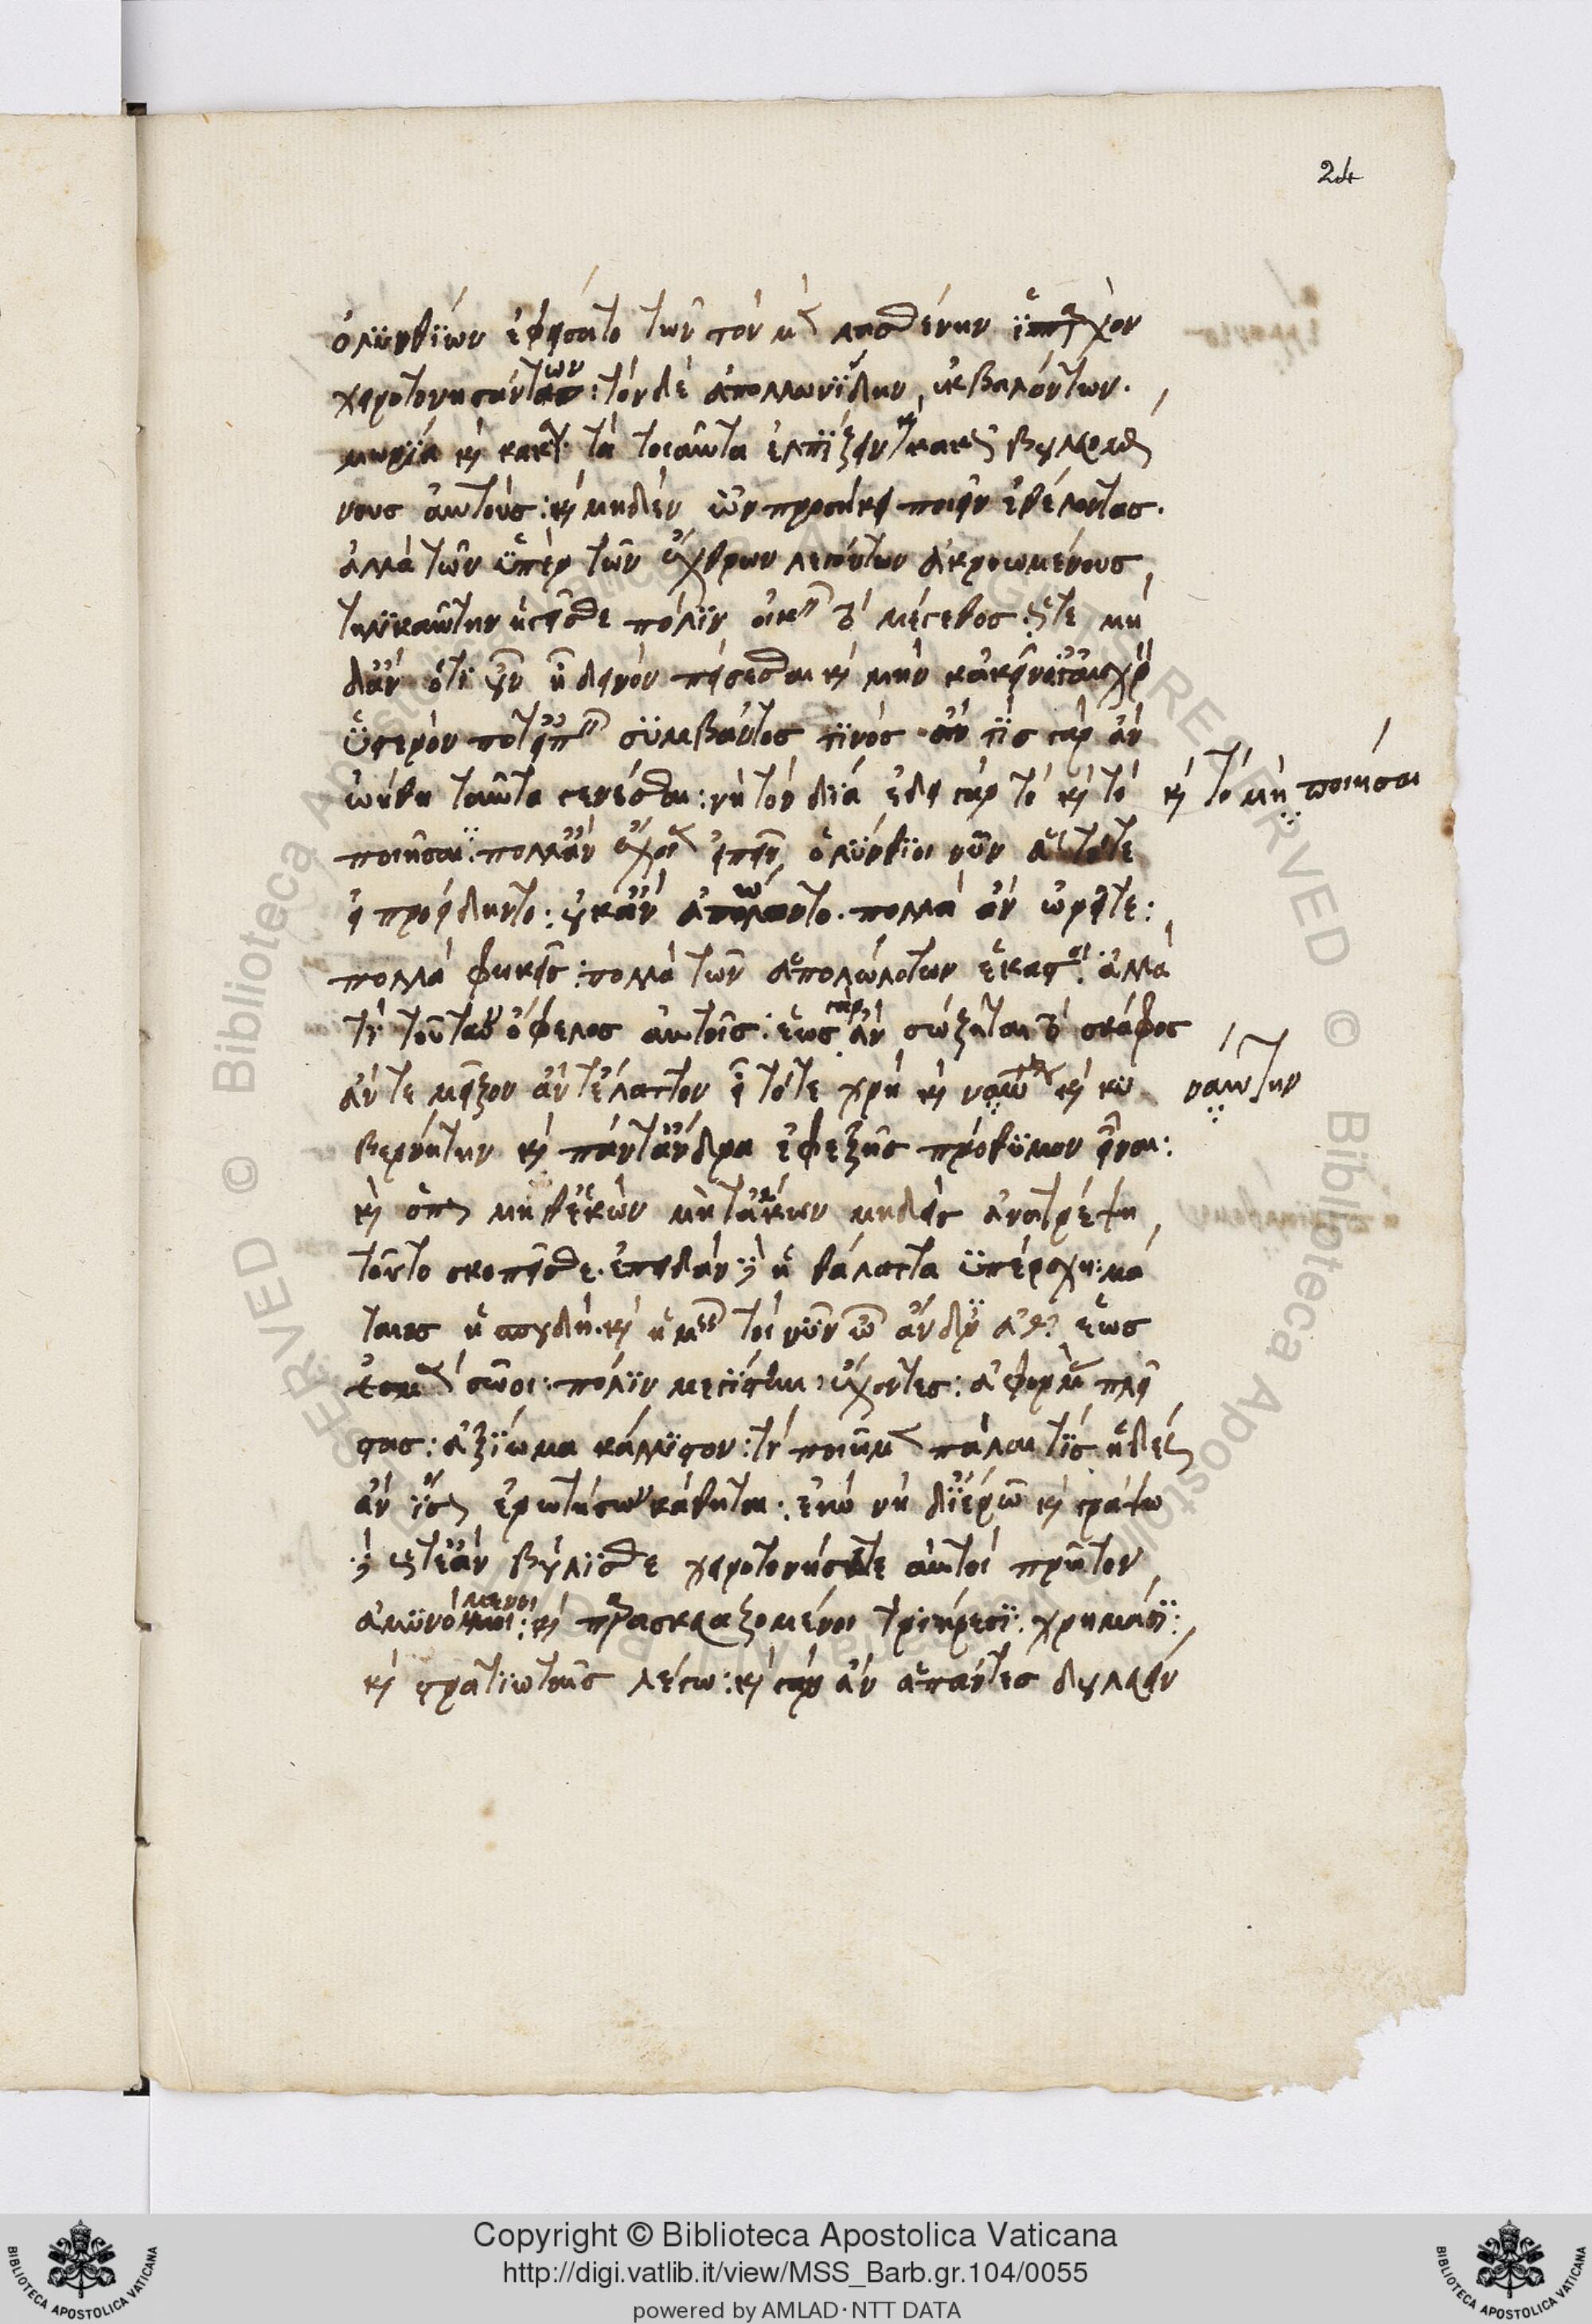 24
ὀλυνθίων ἐφείσατο τῶν τὸν μὲν λασθένην ἵππαρχον
χειροτονησάντων: τὸν δὲ ἀπολλωνίδην ἐκβαλόντων.
μωρία καὶ κακία τὰ τοιαῦτα ἐλπίζειν καὶ κακῶς βουλευομέ
νους αὐτούς: καὶ μηδὲν ὧν προσήκει ποιεῖν ἐθέλοντας.
ἀλλὰ τῶν ὑπὲρ τῶν ἐχθρων λεγόντων ἀκροωμένους
τηλικαύτην ἡγεῖσθε πόλιν οἰκεῖν τὸ μέγεθος ὥστε μη
δ' ἂν ὁτιοῦν ᾖ δεινὸν πείσεσθαι καὶ μὴν κἀκεῖνό γ' αἰσχρὸν
ὕστερόν ποτ' εἰπεῖν συμβάντος τινός· τίς γὰρ ἂν
ὠήθη ταῦτα γενέσθαι: νὴ τὸν δία ἔδει γὰρ τὸ καὶ τὸ
καὶ τὸ μὴ ποιῆσαι
ποιῆσαι. πολλ' ἂν ἔχοιεν εἰπεῖν ὀλύνθιοι νῦν ἃ τότε
εἰ προείδοντο: οὐκ ἂν ἀπώλοντο. πολλὰ ἂν ὠρεῖται:
πολλὰ φωκεῖς: πολλὰ τῶν ἀπολωλότων ἕκαστοι: ἀλλὰ
τί τούτων ὄφελος αὐτοῖς: ἕως γὰρ ἂν σώζηται τὸ σκάφος
ἄν τε μεῖζον ἄν τ' ἔλαττον ᾖ τότε χρὴ καὶ ναύτην καὶ κυ
ναύτην
βερνήτην καὶ πάντ' ἄνδρα ἐφεξῆς πρόθυμον εἶναι:
καὶ ὅπως μὴ θ' ἑκὼν μὴτ' ἄκων μηδεὶς ἀνατρέψη
τοῦτο σκοπεῖσθε. ἐπειδὰν δὲ ἡ θάλαττα ὑπέρσχη: μά
ταιος ἡ σπουδή. καὶ ἡμεῖς τοί νῦν ὦ ἄνδρες ἀθηναῖοι ἕως
ἐσμὲν σῶοι: πόλιν μεγίστην ἔχοντες: ἀφορμὰς πλεί
στας: ἀξίωμα κάλλιστον: τί ποιῶμεν πάλαι τίς ἡδέως
ἂν ἴσως ἐρωτήσων κάθηται. ἐγὼ νὴ δί' ἐρῶ καὶ γράψω
δὲ ὥστε ἂν βούλισθε χειροτονήσετε αὐτοὶ πρῶτον
ἀμυνόμενοι: καὶ παρασκευαζομένοι τριήρεσι: χρημάσι:
καὶ στρατιωταῖς λέγω: καὶ γὰρ ἂν ἅπαντες δουλεύειν
Copyright © Biblioteca Apostolica Vaticana
http://digi.vatlib.it/view/MSS_Barb.gr.104/0055
powered by AMLAD·NTT DATA